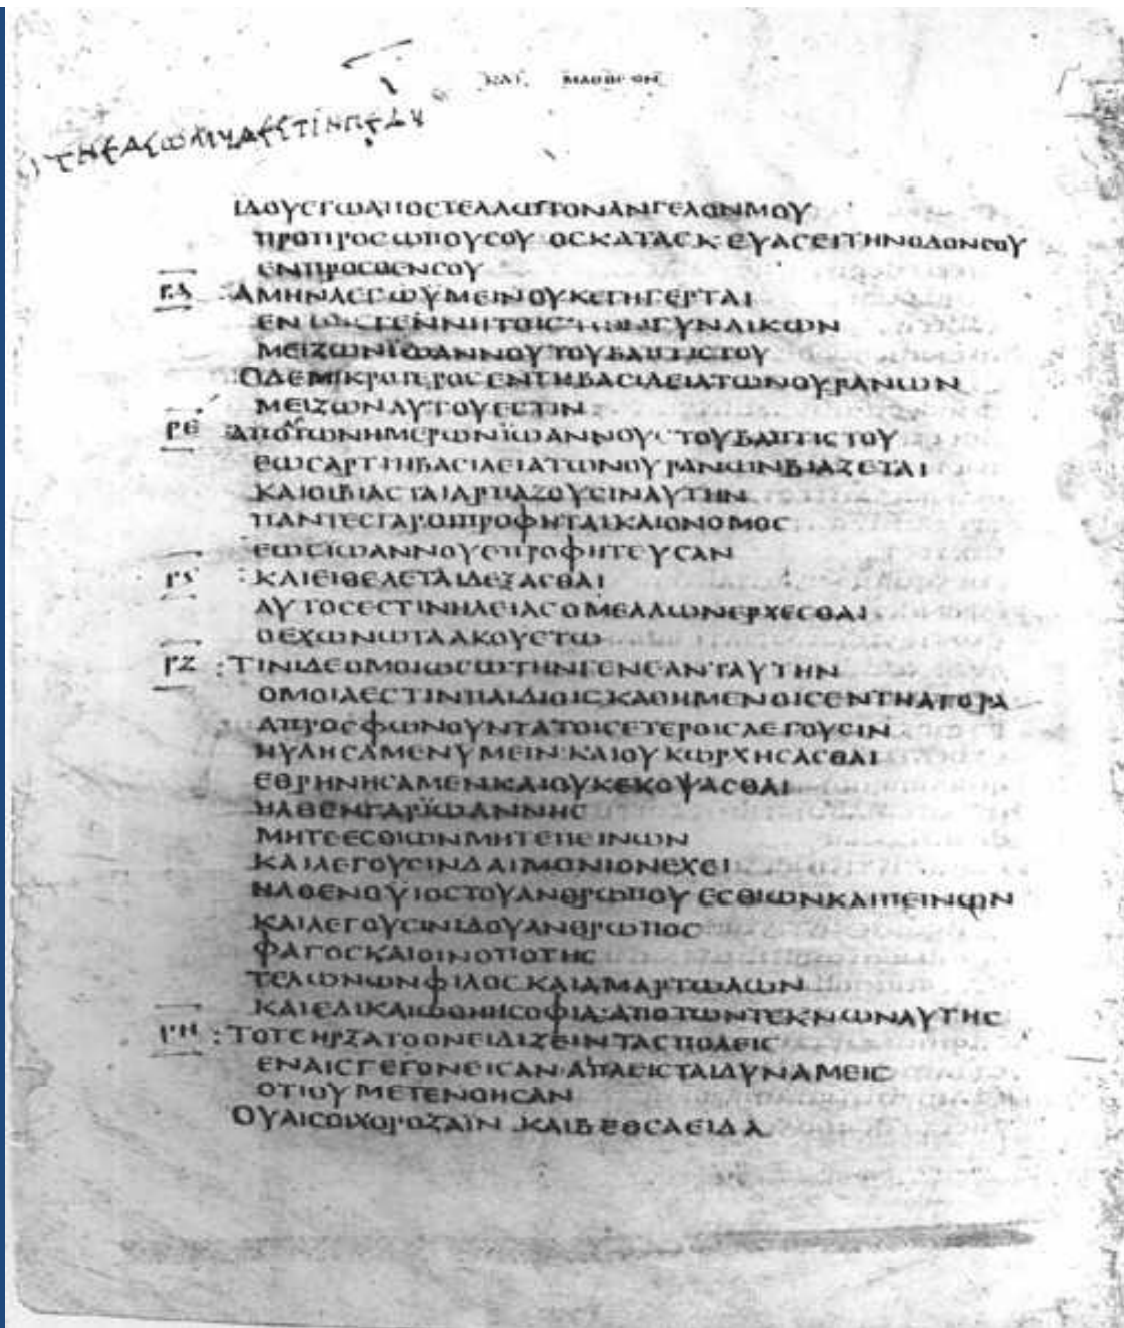 ΚΑΤ ΜΑΘΘΕΟΝ
ΙΔΟΥΕΓΩΑΠΟCΤΕΛΛΩΤΟΝΑΝΓΕΛΟΝΜΟΥ
ΠΡΟΠΡΟCΩΠΟΥCΟΥ ΟCΚΑΤΑCΚΕΥΑCΕΙΤΗΝΟΔΟΝCΟΥ
ΕΝΠΡΟCΘΕΝCΟΥ
ΡΔ :ΑΜΗΝΛΕΓΩΥΜΕΙΝΟΥΚΕΓΗΓΕΡΤΑΙ
ΕΝ ΓΕΝΝΗΤΟΙC ΓΥΝΑΙΚΩΝ
ΜΕΙΖΩΝΪΩΑΝΝΟΥΤΟΥΒΑΠΤΙCΤΟΥ
ΟΔΕΜΙΚΡΟΤΕΡΟCΕΝΤΗΒΑCΙΛΕΙΑΤΩΝΟΥΡΑΝΩΝ
ΜΕΙΖΩΝΑΥΤΟΥΕCΤΙΝ
ΡΕ :ΑΠΟΤΩΝΗΜΕΡΩΝΪΩΑΝΝΟΥCΤΟΥΒΑΠΤΙCΤΟΥ
ΕΩCΑΡΤΙΗΒΑCΙΛΕΙΑΤΩΝΟΥΡΑΝΩΝΒΙΑΖΕΤΑΙ
ΚΑΙΟΙΒΙΑCΤΑΙΑΡΠΑΖΟΥCΙΝΑΥΤΗΝ
ΠΑΝΤΕCΓΑΡΟΙΠΡΟΦΗΤΑΙΚΑΙΟΝΟΜΟC
ΕΩCΙΩΑΝΝΟΥΕΠΡΟΦΗΤΕΥCΑΝ
ΡϚ :ΚΑΙΕΙΘΕΛΕΤΑΙΔΕΞΑCΘΑΙ
ΑΥΤΟCΕCΤΙΝΗΛΕΙΑCΟΜΕΛΛΩΝΕΡΧΕCΘΑΙ
ΟΕΧΩΝΩΤΑΑΚΟΥΕΤΩ
ΡΖ :ΤΙΝΙΔΕΟΜΟΙΩCΩΤΗΝΓΕΝΕΑΝΤΑΥΤΗΝ
ΟΜΟΙΑΕCΤΙΝΠΑΙΔΙΟΙCΚΑΘΗΜΕΝΟΙCΕΝΤΗΑΓΟΡΑ
ΑΠΡΟCΦΩΝΟΥΝΤΑΤΟΙCΕΤΕΡΟΙCΛΕΓΟΥCΙΝ
ΗΥΛΗCΑΜΕΝΥΜΕΙΝ·ΚΑΙΟΥΚΩΡΧΗCΑCΘΑΙ
ΕΘΡΗΝΗCΑΜΕΝΚΑΙΟΥΚΕΚΟΨΑCΘΑΙ
ΗΛΘΕΝΓΑΡΪΩΑΝΝΗC
ΜΗΤΕΕCΘΙΩΝΜΗΤΕΠΕΙΝΩΝ
ΚΑΙΛΕΓΟΥCΙΝΔΑΙΜΟΝΙΟΝΕΧΕΙ
ΗΛΘΕΝΟΥΙΟCΤΟΥΑΝΘΡΩΠΟΥΕCΘΙΩΝΚΑΙΠΕΙΝΩΝ
ΚΑΙΛΕΓΟΥCΙΝΙΔΟΥΑΝΘΡΩΠΟC
ΦΑΓΟCΚΑΙΟΙΝΟΠΟΤΗC
ΤΕΛΩΝΩΝΦΙΛΟCΚΑΙΑΜΑΡΤΩΛΩΝ
ΚΑΙΕΔΙΚΑΙΩΘΗΗCΟΦΙΑ:ΑΠΟΤΩΝΤΕΚΝΩΝΑΥΤΗC
ΡΗ :ΤΟΤΕΗΡΞΑΤΟΟΝΕΙΔΙΖΕΙΝΤΑCΠΟΛΕΙC
ΕΝΑΙCΓΕΓΟΝΕΙCΑΝ·ΑΠΛΕΙCΤΑΙΔΥΝΑΜΕΙC
ΟΤΙΟΥΜΕΤΕΝΟΗCΑΝ
ΟΥΑΙCΟΙΧΟΡΟΖΑΪΝ ΚΑΙΒΕΘCΑΕΙΔΑ